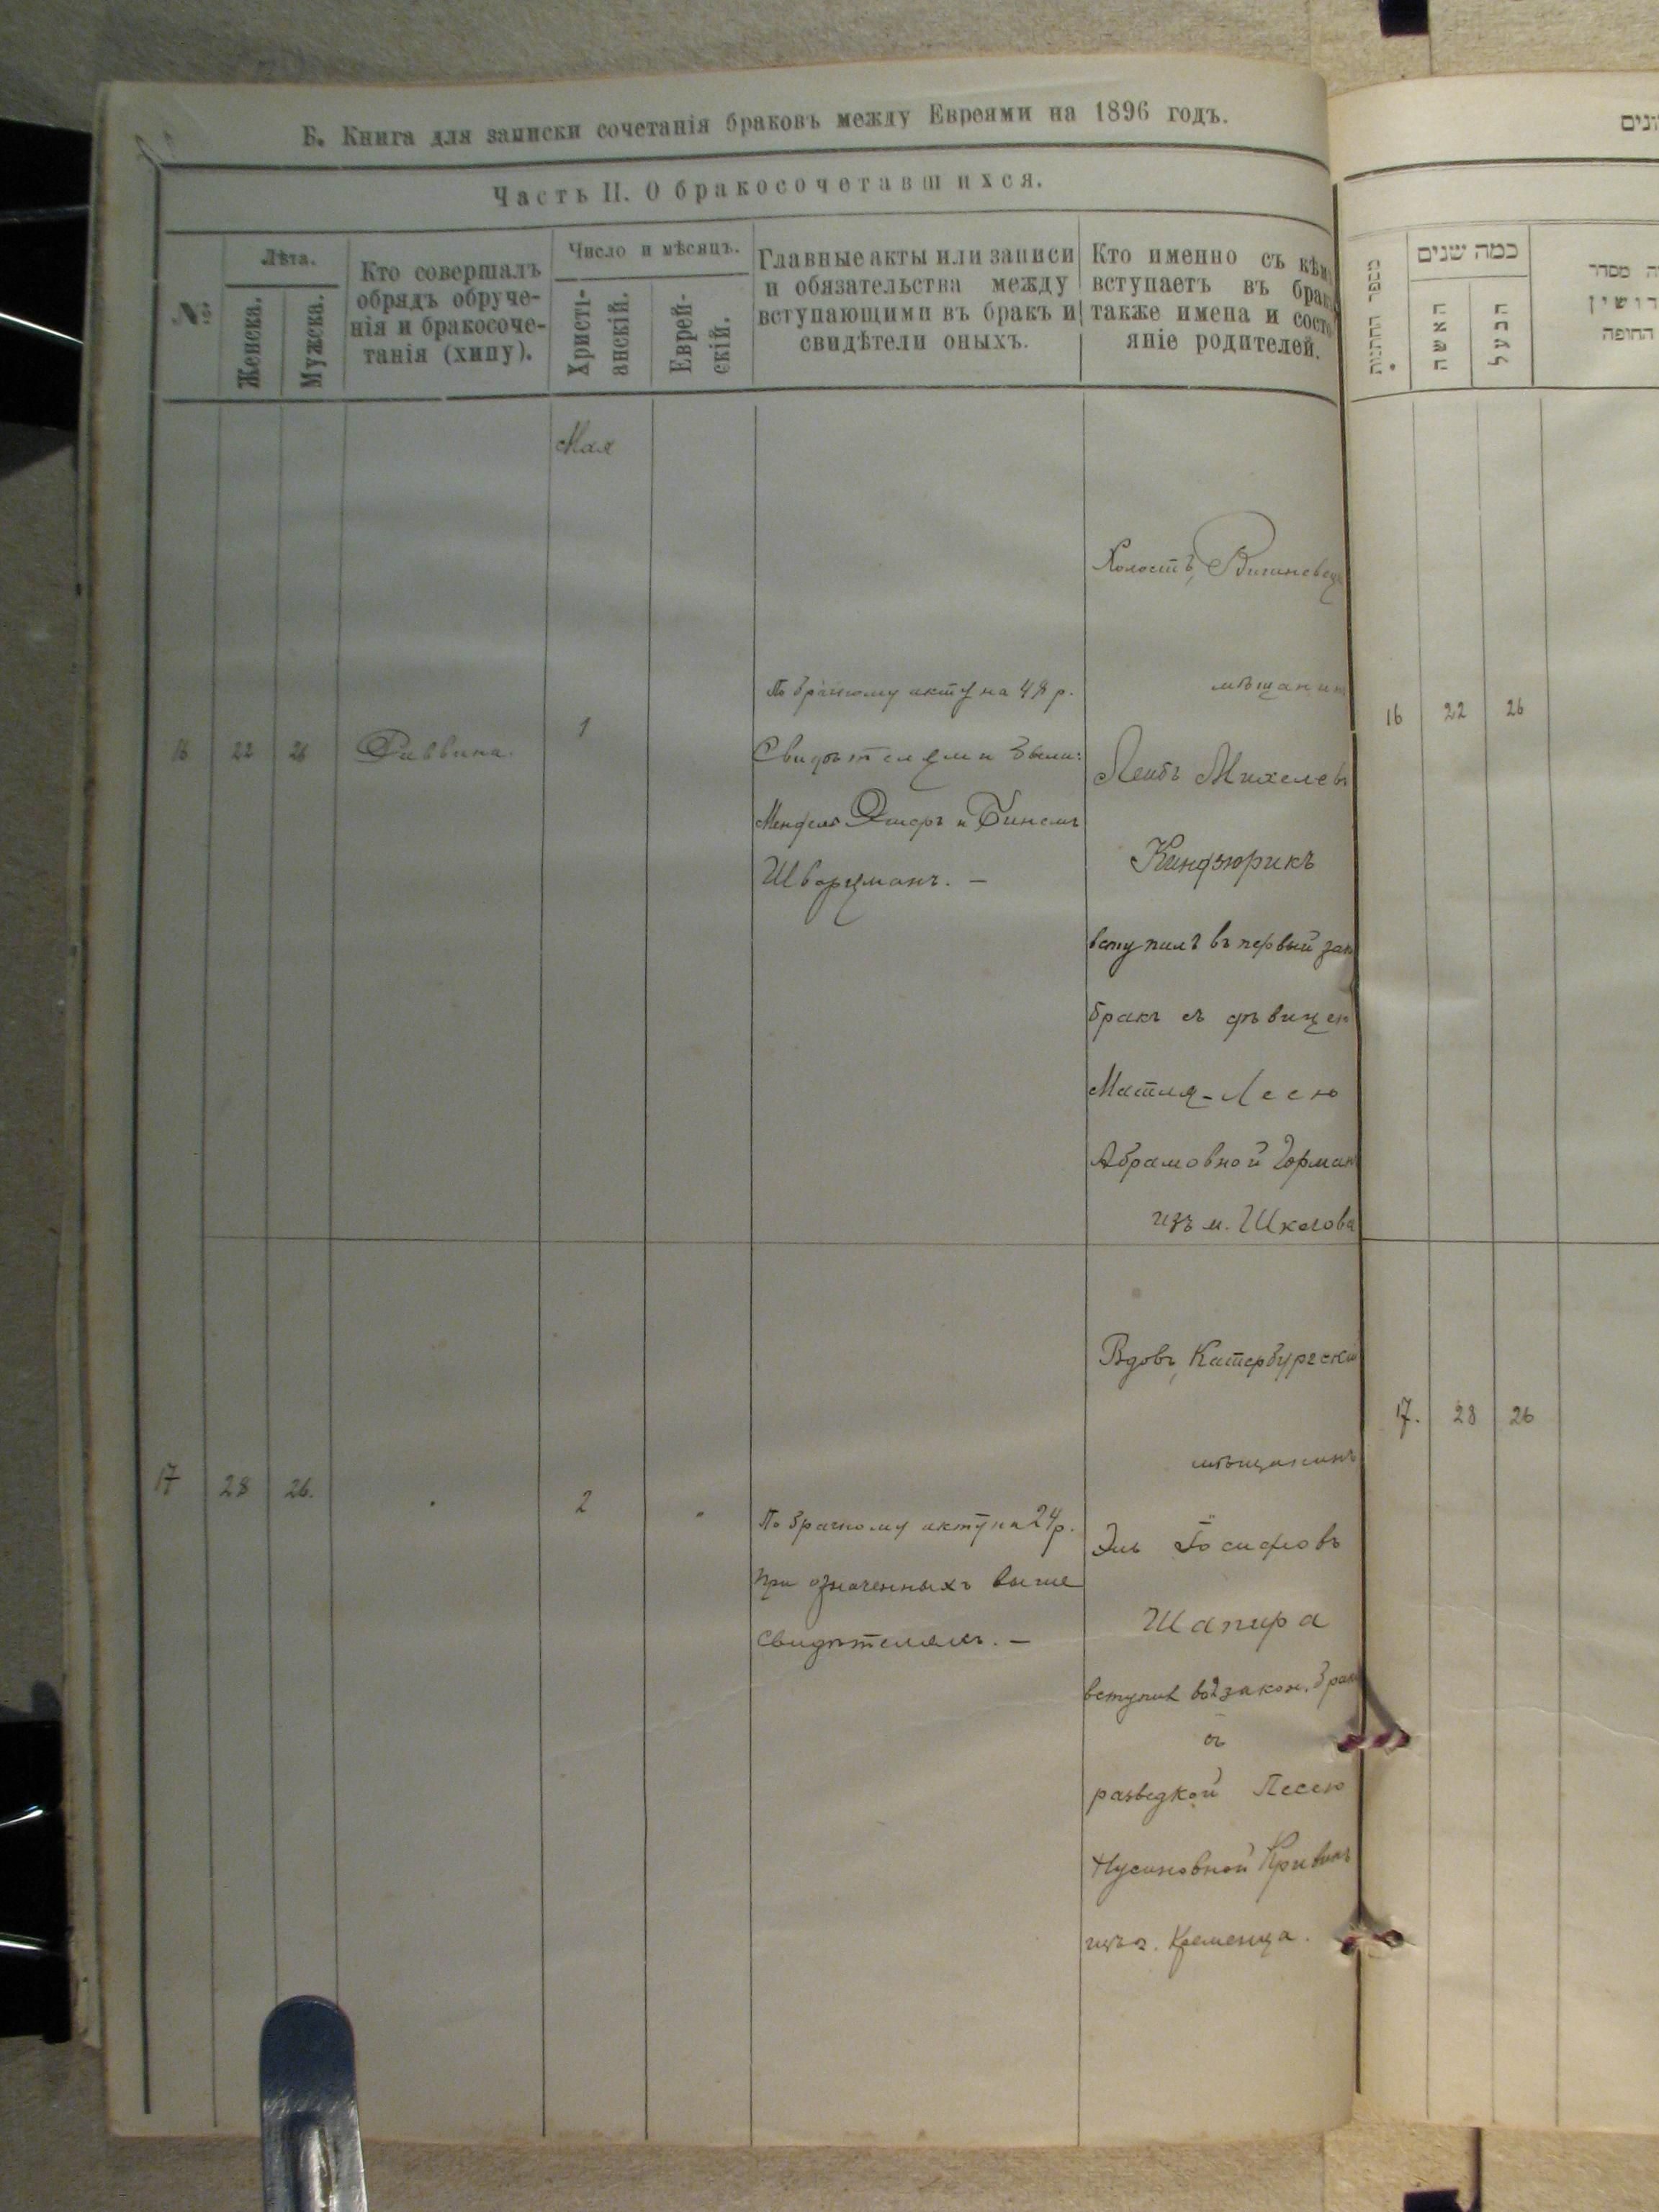 Б. Книга для записки сочетанія браковъ между Евреями на 1896 годъ.
Часть II. О бракосочетавшихся.
№
Лѣта.
Женска.
Мужска.
Кто совершалъ
обрядъ обруче-
нія и бракосоче-
танія (хипу).
Число и мѣсяцъ.
Христі-
анскій.
Еврей-
скій.
Главные акты или записи
и обязательства между
вступающими въ бракъ и
свидѣтели оныхъ.
Кто именно съ
вступаетъ въ
также имена и
яніе родителей.
Мая
16 22 26 Раввина. 1
По брачному акту на 48 р.
Свидѣтелями были:
Мендель и
Шварцманъ. —
Холостъ,
мѣщанинъ
Лейбъ Михелевъ
Киндзюрикъ
вступилъ въ первый зак
бракъ съ дѣвицею
Матля-Лесею
Абрамовной
изъ м.
17 28 26. 2 "
По брачному акту на 24 р.
при означенныхъ выше
свидѣтеляхъ. —
Вдовъ, Катербургскій
мѣщанинъ
Эль Іосифовъ
Шапира
вступил во 2 закон. брак
съ
разведкой Песею
Нусиновной
изъ г. Кременца.
כמה שנים
מספר החתונות
האשה
הבעל
מסדר
החופה
16 22 26
17. 28 26